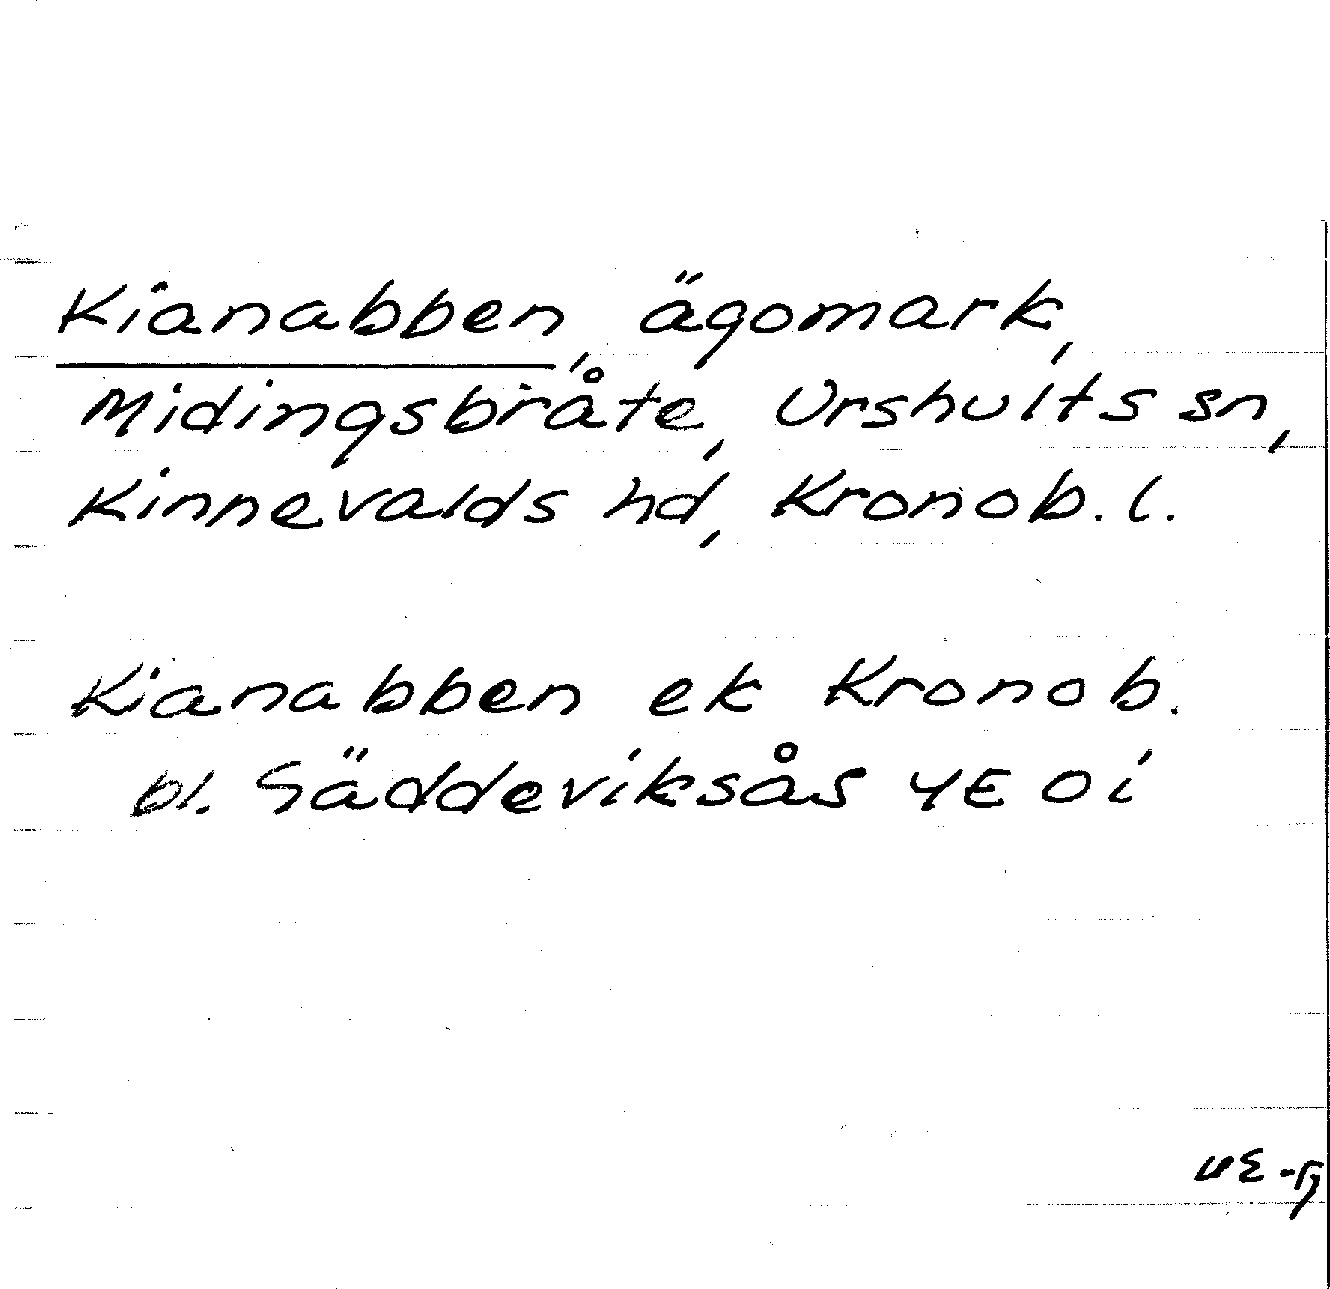 Kianabben, ägomark,
Midingsbråte, Urshults sn,
Kinnevalds hd, Kronob. l.
Kianabben ek Kronob.
bl. Säddeviksås 4E 0i